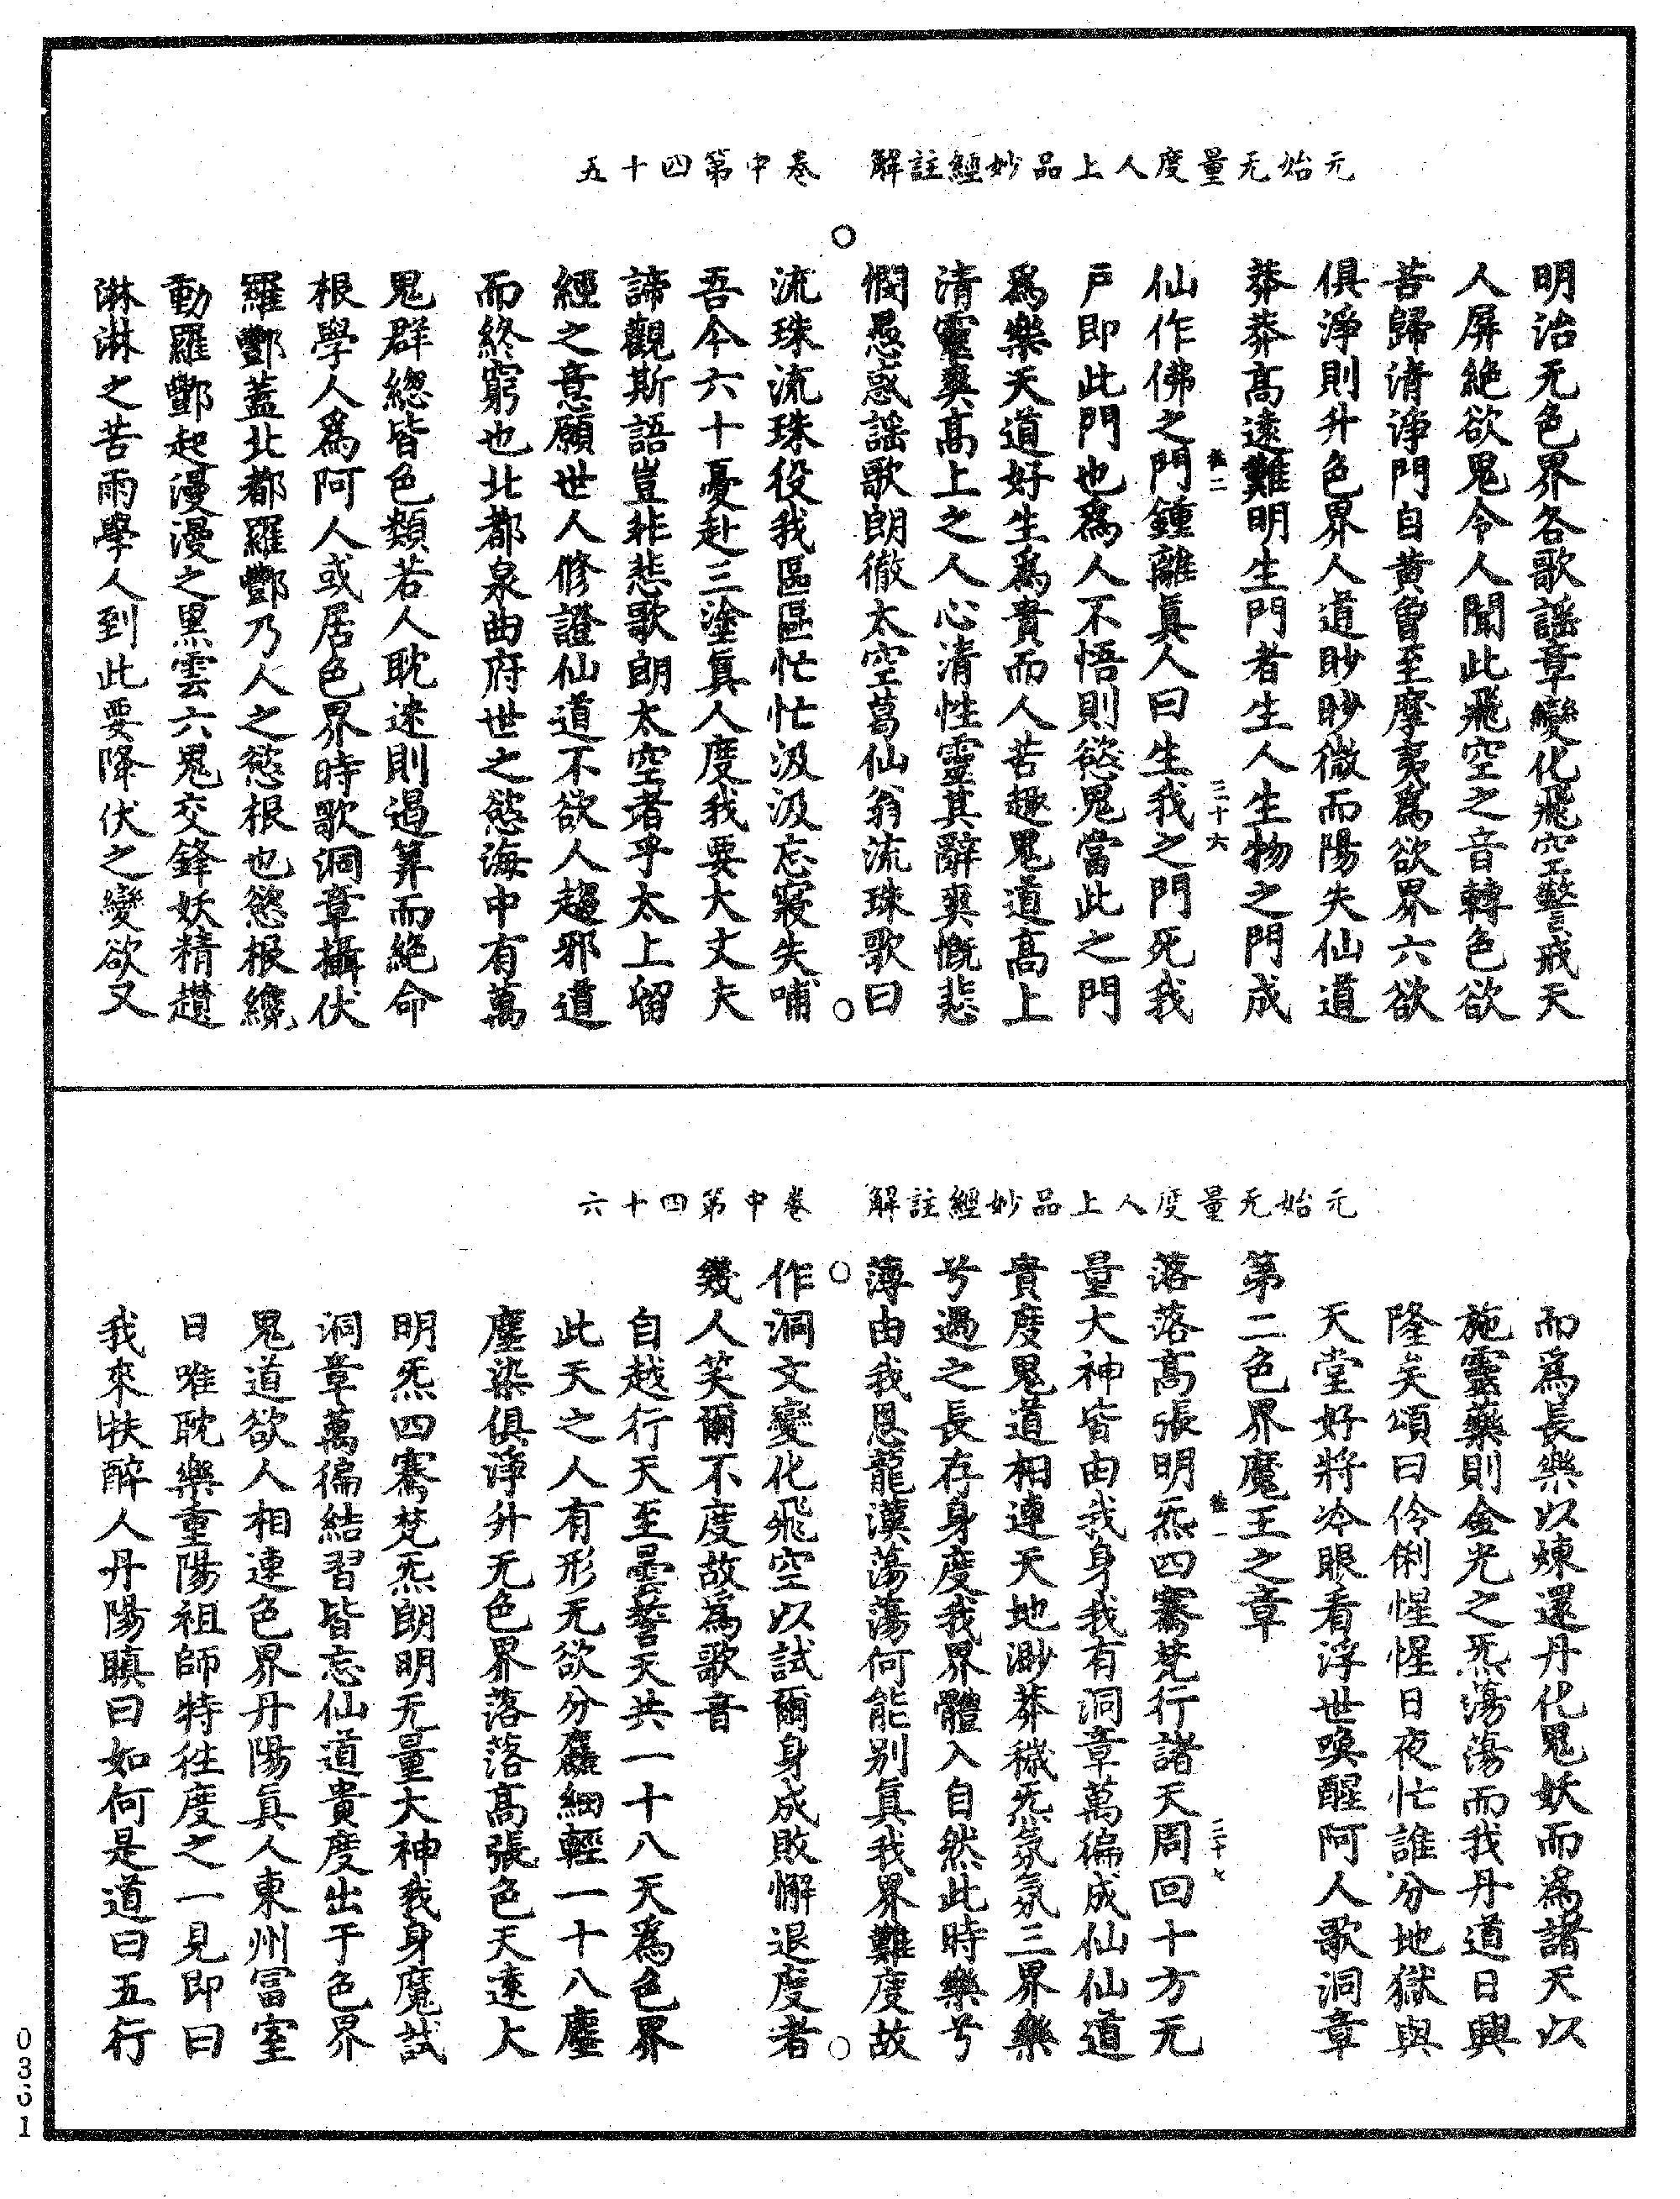 元始无量度人上品妙經註解　卷中第四十五
明治无色界各歌謡章變化飛空警戒天
人屏絶欲鬼令人聞此飛空之音轉色欲
苦歸清淨門自黄曽至摩夷爲欲界六欲
俱淨則升色界人道眇眇微而陽失仙道
莽莽高遠難明生門者生人生物之門成
仙作佛之門鍾離真人曰生我之門死我
三十六
戸即此門也爲人不悟則慾鬼當此之門
爲樂天道好生爲貴而人苦趣鬼道高上
清靈爽高上之人心清性靈其辭爽慨悲
憫愚惑謡歌朗徹太空葛仙翁流珠歌曰
流珠流珠役我區區忙忙汲汲忘寢失哺
吾今六十憂赴三塗真人度我要大丈夫
諦觀斯語豈非悲歌朗太空者乎太上留
經之意願世人修證仙道不欲人趨邪道
而終窮也北都泉曲府世之慾海中有萬
鬼群緫皆色類若人耽迷則遏筭而絶命
根學人爲阿人或居色界時歌洞章攝伏
羅酆蓋北都羅酆乃人之慾根也慾根纔
動羅酆起漫漫之黒雲六鬼交鋒妖精趲
淋淋之苦雨學人到此要降伏之變欲又
元始无量度人上品妙經註解　卷中第四十六
而爲長樂以煉還丹化鬼妖而爲諸天以
施靈藥則金光之炁蕩蕩而我丹道日興
隆矣頌曰伶俐惺惺日夜忙誰分地獄與
天堂好將冷眼看浮世喚醒阿人歌洞章
第二色界魔王之章
落落高張明炁四騫梵行諸天周回十方无
三十七
量大神皆由我身我有洞章萬徧成仙仙道
貴度鬼道相連天地渺莽穢炁氛氛三界樂
兮過之長存身度我界體入自然此時樂兮
薄由我恩龍漢蕩蕩何能别真我界難度故
作洞文變化飛空以試爾身成敗懈退度者
幾人笑爾不度故爲歌音
自越行天至曇誓天共一十八天爲色界
此天之人有形无欲分麤細輕一十八塵
塵染俱淨升无色界落落高張色天遠大
明炁四騫梵炁朗明无量大神我身魔試
洞章萬徧結習皆忘仙道貴度出于色界
鬼道欲人相連色界丹陽真人東州冨室
日唯耽樂重陽祖師特徃度之一見即曰
我來扶醉人丹陽瞋曰如何是道曰五行
0361